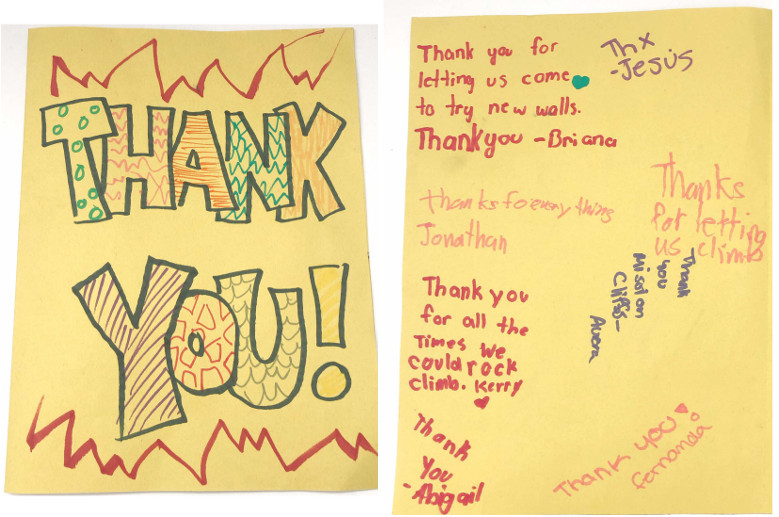 THANK
YOU!
Thank you for
letting us come
to try new walls.
Thankyou -Briana
Thx
-Jesús
thanks for every thing
Jonathan
Thanks
for letting
us climb
Thank
you
Mission
Cliffs-
Thank you
for all the
Times we
could rock
climb. Kerry
Thank
You
-Abigail
Thank you
fernanda